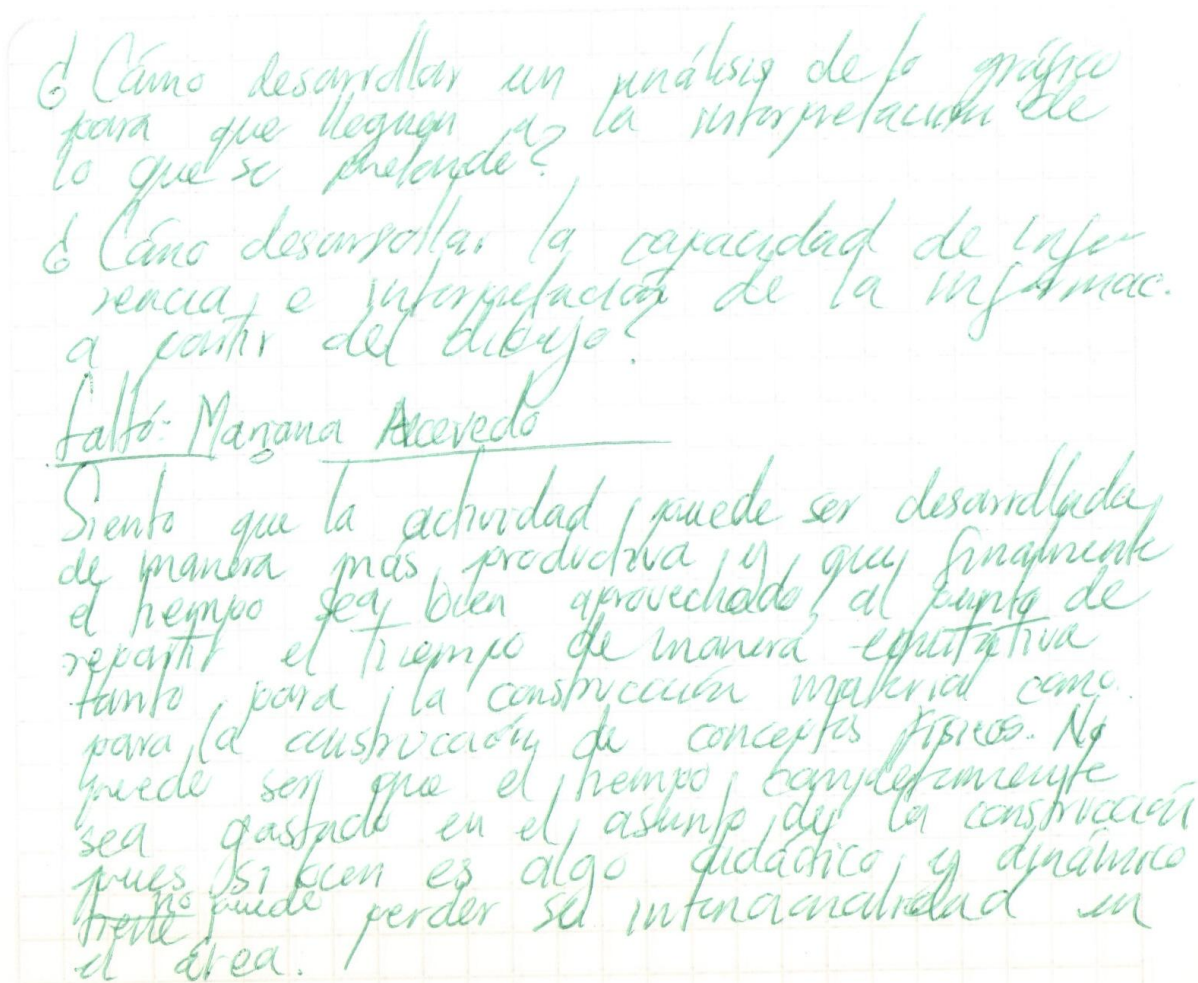 ¿Cómo desarrollar un análisis de lo gráfico
para que lleguen a la interpretación de
lo que se pretende?
¿Cómo desarrollar la capacidad de infe-
rencia, e interpretación de la informac.
a partir del dibujo?
faltó: Mariana Acevedo
Siento que la actividad puede ser desarrollada
de manera más productiva y que finalmente
el tiempo sea bien aprovechado, al punto de
repartir el tiempo de manera equitativa
tanto para la construcción material como
para la construcción de conceptos físicos. No
puede ser que el tiempo completamente
sea gastado en el asunto de la construcción
pues si bien es algo didáctico y dinámico
no puede perder su intencionalidad en
el área.